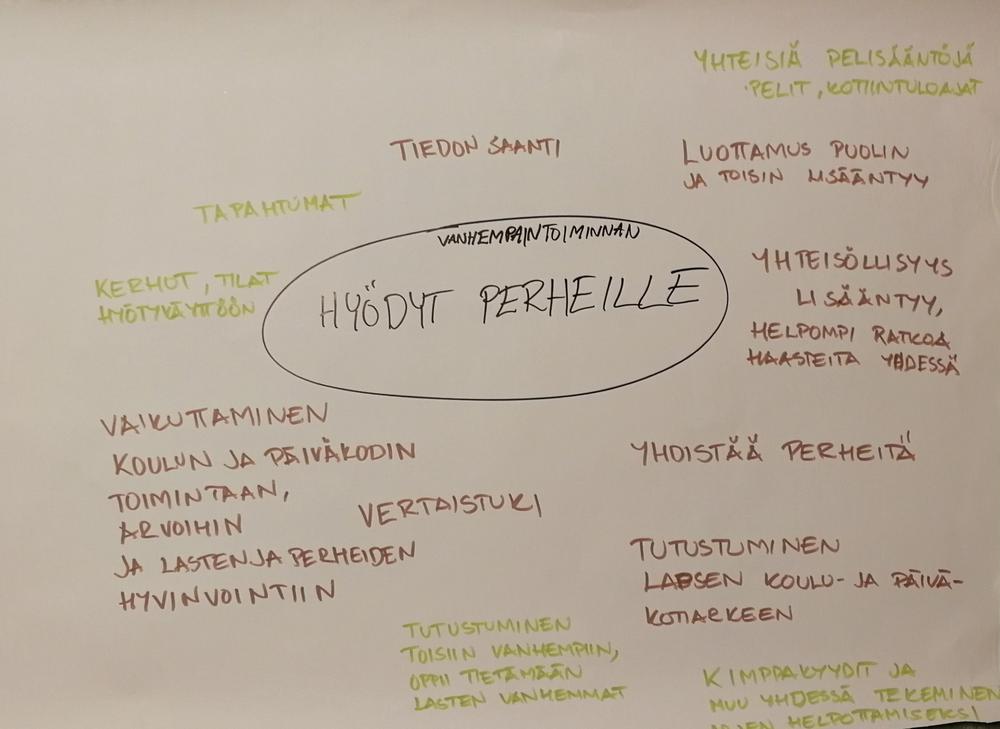 YHTEISIÄ PELISÄÄNTÖJÄ
PELIT, KOTIINTULOAJAT
TIEDON SAANTI
LUOTTAMUS PUOLIN
JA TOISIN LISÄÄNTYY
TAPAHTUMAT
VANHEMPAINTOIMINNAN
HYÖDYT PERHEILLE
KERHOT, TILAT
HYÖTYKÄYTTÖÖN
YHTEISÖLLISYYS
LISÄÄNTYY,
HELPOMPI RATKOA
HAASTEITA YHDESSÄ
VAIKUTTAMINEN
KOULUN JA PÄIVÄKODIN
TOIMINTAAN,
ARVOIHIN
JA LASTEN JA PERHEIDEN
HYVINVOINTIIN
VERTAISTUKI
YHDISTÄÄ PERHEITÄ
TUTUSTUMINEN
LAPSEN KOULU- JA PÄIVÄ-
KOTIARKEEN
TUTUSTUMINEN
TOISIIN VANHEMPIIN,
OPPII TIETÄMÄÄN
LASTEN VANHEMMAT
KIMPPAKYYDIT JA
MUU YHDESSÄ TEKEMINEN
HELPOTTAMISEKSI